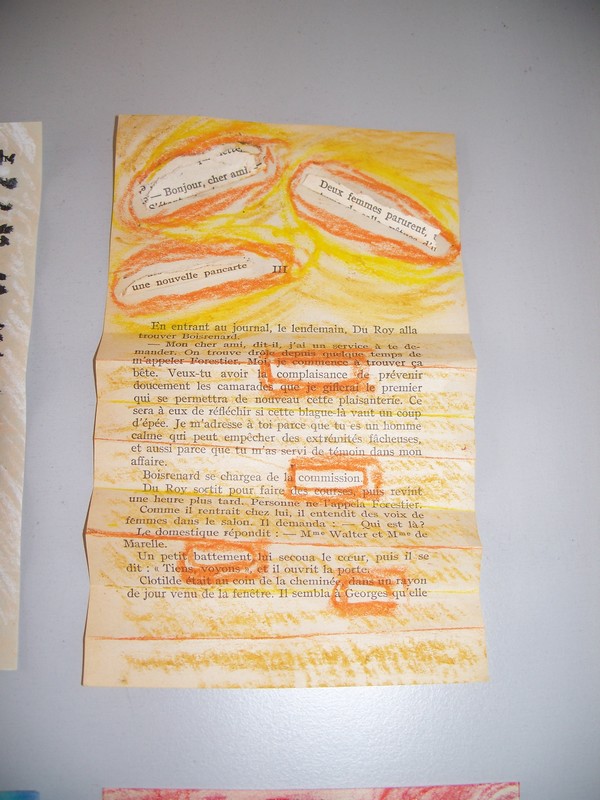 — Bonjour, cher ami.
Deux femmes parurent,
une nouvelle pancarte
III
En entrant au journal, le lendemain, Du Roy alla
trouver Boisrenard.
— Mon cher ami, dit-il, j'ai un service à te de-
mander. On trouve drôle depuis quelque temps de
m'appeler Forestier. Moi, je commence à trouver ça
bête. Veux-tu avoir la complaisance de prévenir
doucement les camarades que je giflerai le premier
qui se permettra de nouveau cette plaisanterie. Ce
sera à eux de réfléchir si cette blague-là vaut un coup
d'épée. Je m'adresse à toi parce que tu es un homme
calme qui peut empêcher des extrémités fâcheuses,
et aussi parce que tu m'as servi de témoin dans mon
affaire.
Boisrenard se chargea de la commission.
Du Roy sortit pour faire des courses, puis revint
une heure plus tard. Personne ne l'appela Forestier.
Comme il rentrait chez lui, il entendit des voix de
femmes dans le salon. Il demanda : — Qui est là?
Le domestique répondit : — Mme Walter et Mme de
Marelle.
Un petit battement lui secoua le cœur, puis il se
dit : « Tiens, voyons », et il ouvrit la porte.
Clotilde était au coin de la cheminée, dans un rayon
de jour venu de la fenêtre. Il sembla à Georges qu'elle